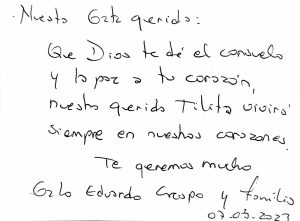 Nuestro Gato querido:
Que Dios te dé el consuelo
y la paz a tu corazón,
nuestra querida Tilita vivirá
siempre en nuestros corazones.
Te queremos mucho
Galo Eduardo Crespo y familia
07.03.2023